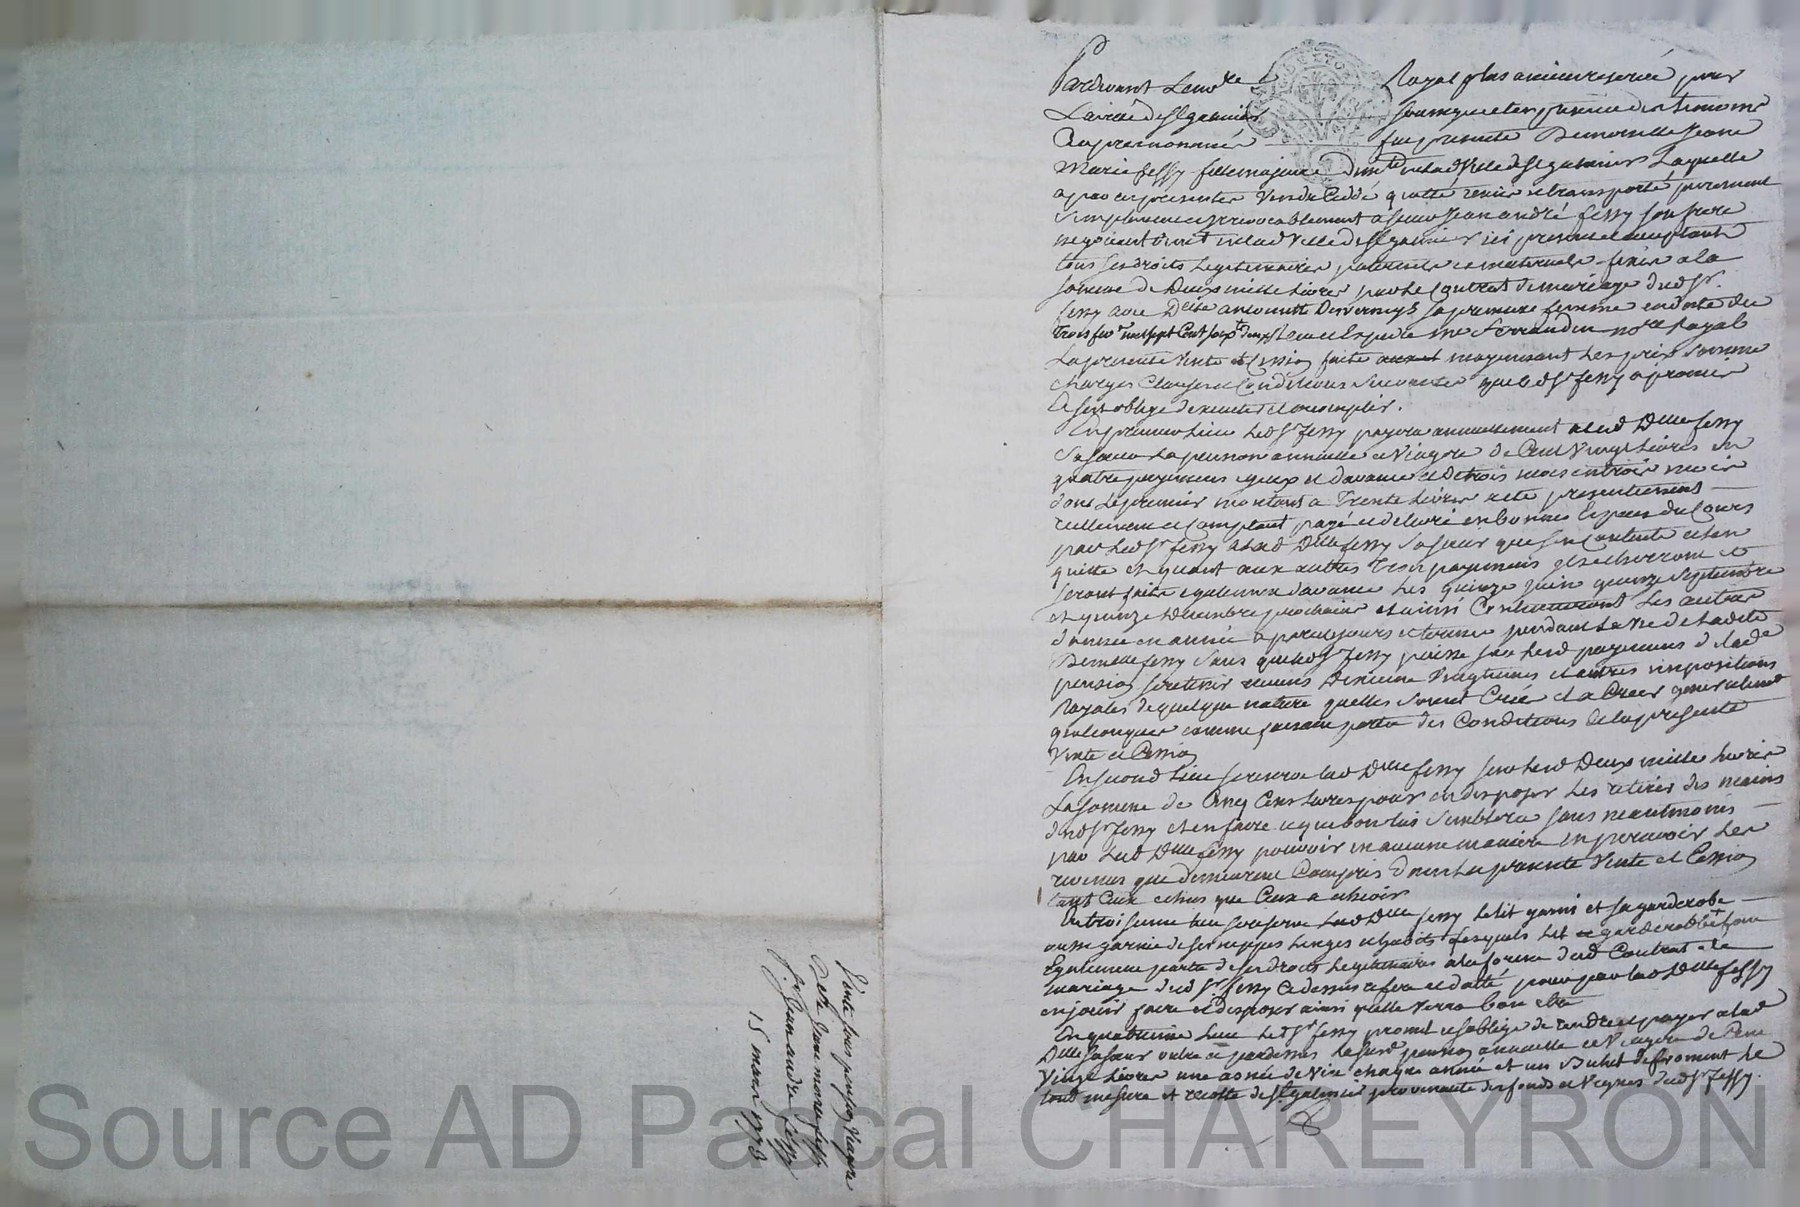 Pardevant Le no.re Royal plus ancien reservé pour
La ville de St galmier soussigné et en presence des temoins
cy apres nommés fut presente Demoiselle Jeane
Marie fessy fille majeure Dem.te en lad Ville de St galmier Laquelle
a par ces presentes Vendu Ceddé quitté remis et transporté purement
simplement et irrevocablement a sieur Jean andré fessy son frere
negociant dem.t en lad Ville de St galmier ici present et acceptant
tous ses droits legitimaires paternels et maternels fixés a la
somme de Deux mille Livres par le Contrat de mariage dud Sr.
fessy avec D.lle antoinette Desverneys sa premiere femme en datte du
trois fev.r mil sept Cent soix.te deux recu et expedié me ferrandin no.re Royal
La presente Vente et Cession faite moyennant les prix somme
charges Clauses et Conditions suivantes que led Sr fessy a promis
et s'est obligé d'executer et accomplir.
En premier Lieu led Sr fessy payera annuellement a lad D.lle fessy
sa soeur la pension annuelle et Viagere de Cent Vingt Livres en
quatre payemens egaux et d'avance et de trois mois en trois mois
dont le premier montant a Trente Livres a eté presentement
reellement et Comptant payé et delivré en bonnes Especes du Cours
par led Sr fessy a lad D.lle fessy sa soeur que s'en Contente et l'en
quitte et quant aux autres Trois payemens ils echerront et
seront faits egalement d'avance les quinze juin quinze Septembre
et quinze Decembre prochains et ainsi Continueront les autres
d'année en année a pareils jours et termes pendant la Vie de ladite
Demlle fessy sans que led Sr fessy puisse sur lesd payemens de lad.e
pension se retenir aucuns Dixieme Vingtiemes et autres impositions
Royales de quelque nature quelles soient Créé et a Créer generalement
quelconques comme faisant partie des Conditions de la presente
Vente et Cession
En second Lieu se reserve lad D.lle fessy sur lesd Deux mille livres
La somme de Cinq Cens livres pour en disposer les retirer des mains
dud Sr fessy et en faire ce que bon lui semblera sans neanmoins
par lad D.lle fessy pouvoir en aucune maniere en percevoir les
revenus que demeurent Compris dans la presente Vente et Cession
tant Ceux echus que Ceux a echeoir
En troisieme lieu se reserve lad D.lle fessy le lit garni et sa garderobe
aussi garnie de ses nippes linges et habits lesquels lit et garderobbe font
Egalement partie de ses droits legitimaires a la forme dud Contrat de
mariage dud Sr fessy cy dessus referé et datté pour par lad D.lle fessy
en jouir faire et disposer ainsi qu'elle verra bon etre
En quatrieme Lieu led Sr fessy promet et s'oblige de rendre et payer a lad
D.lle sa soeur outre et par dessus la susd pension annuelle et Viagere de Cent
Vingt Livres une asnée de Vin chaque année et un Bichet de froment le
tout mesure et recolte de St galmier provenants des fonds et Vignes dud Sr fessy.
Vente sous pension Viagere
de D.lle Jane marie fessy
a Sr Jean andré fessy
15 mars 1773
Source AD Pascal CHAREYRON